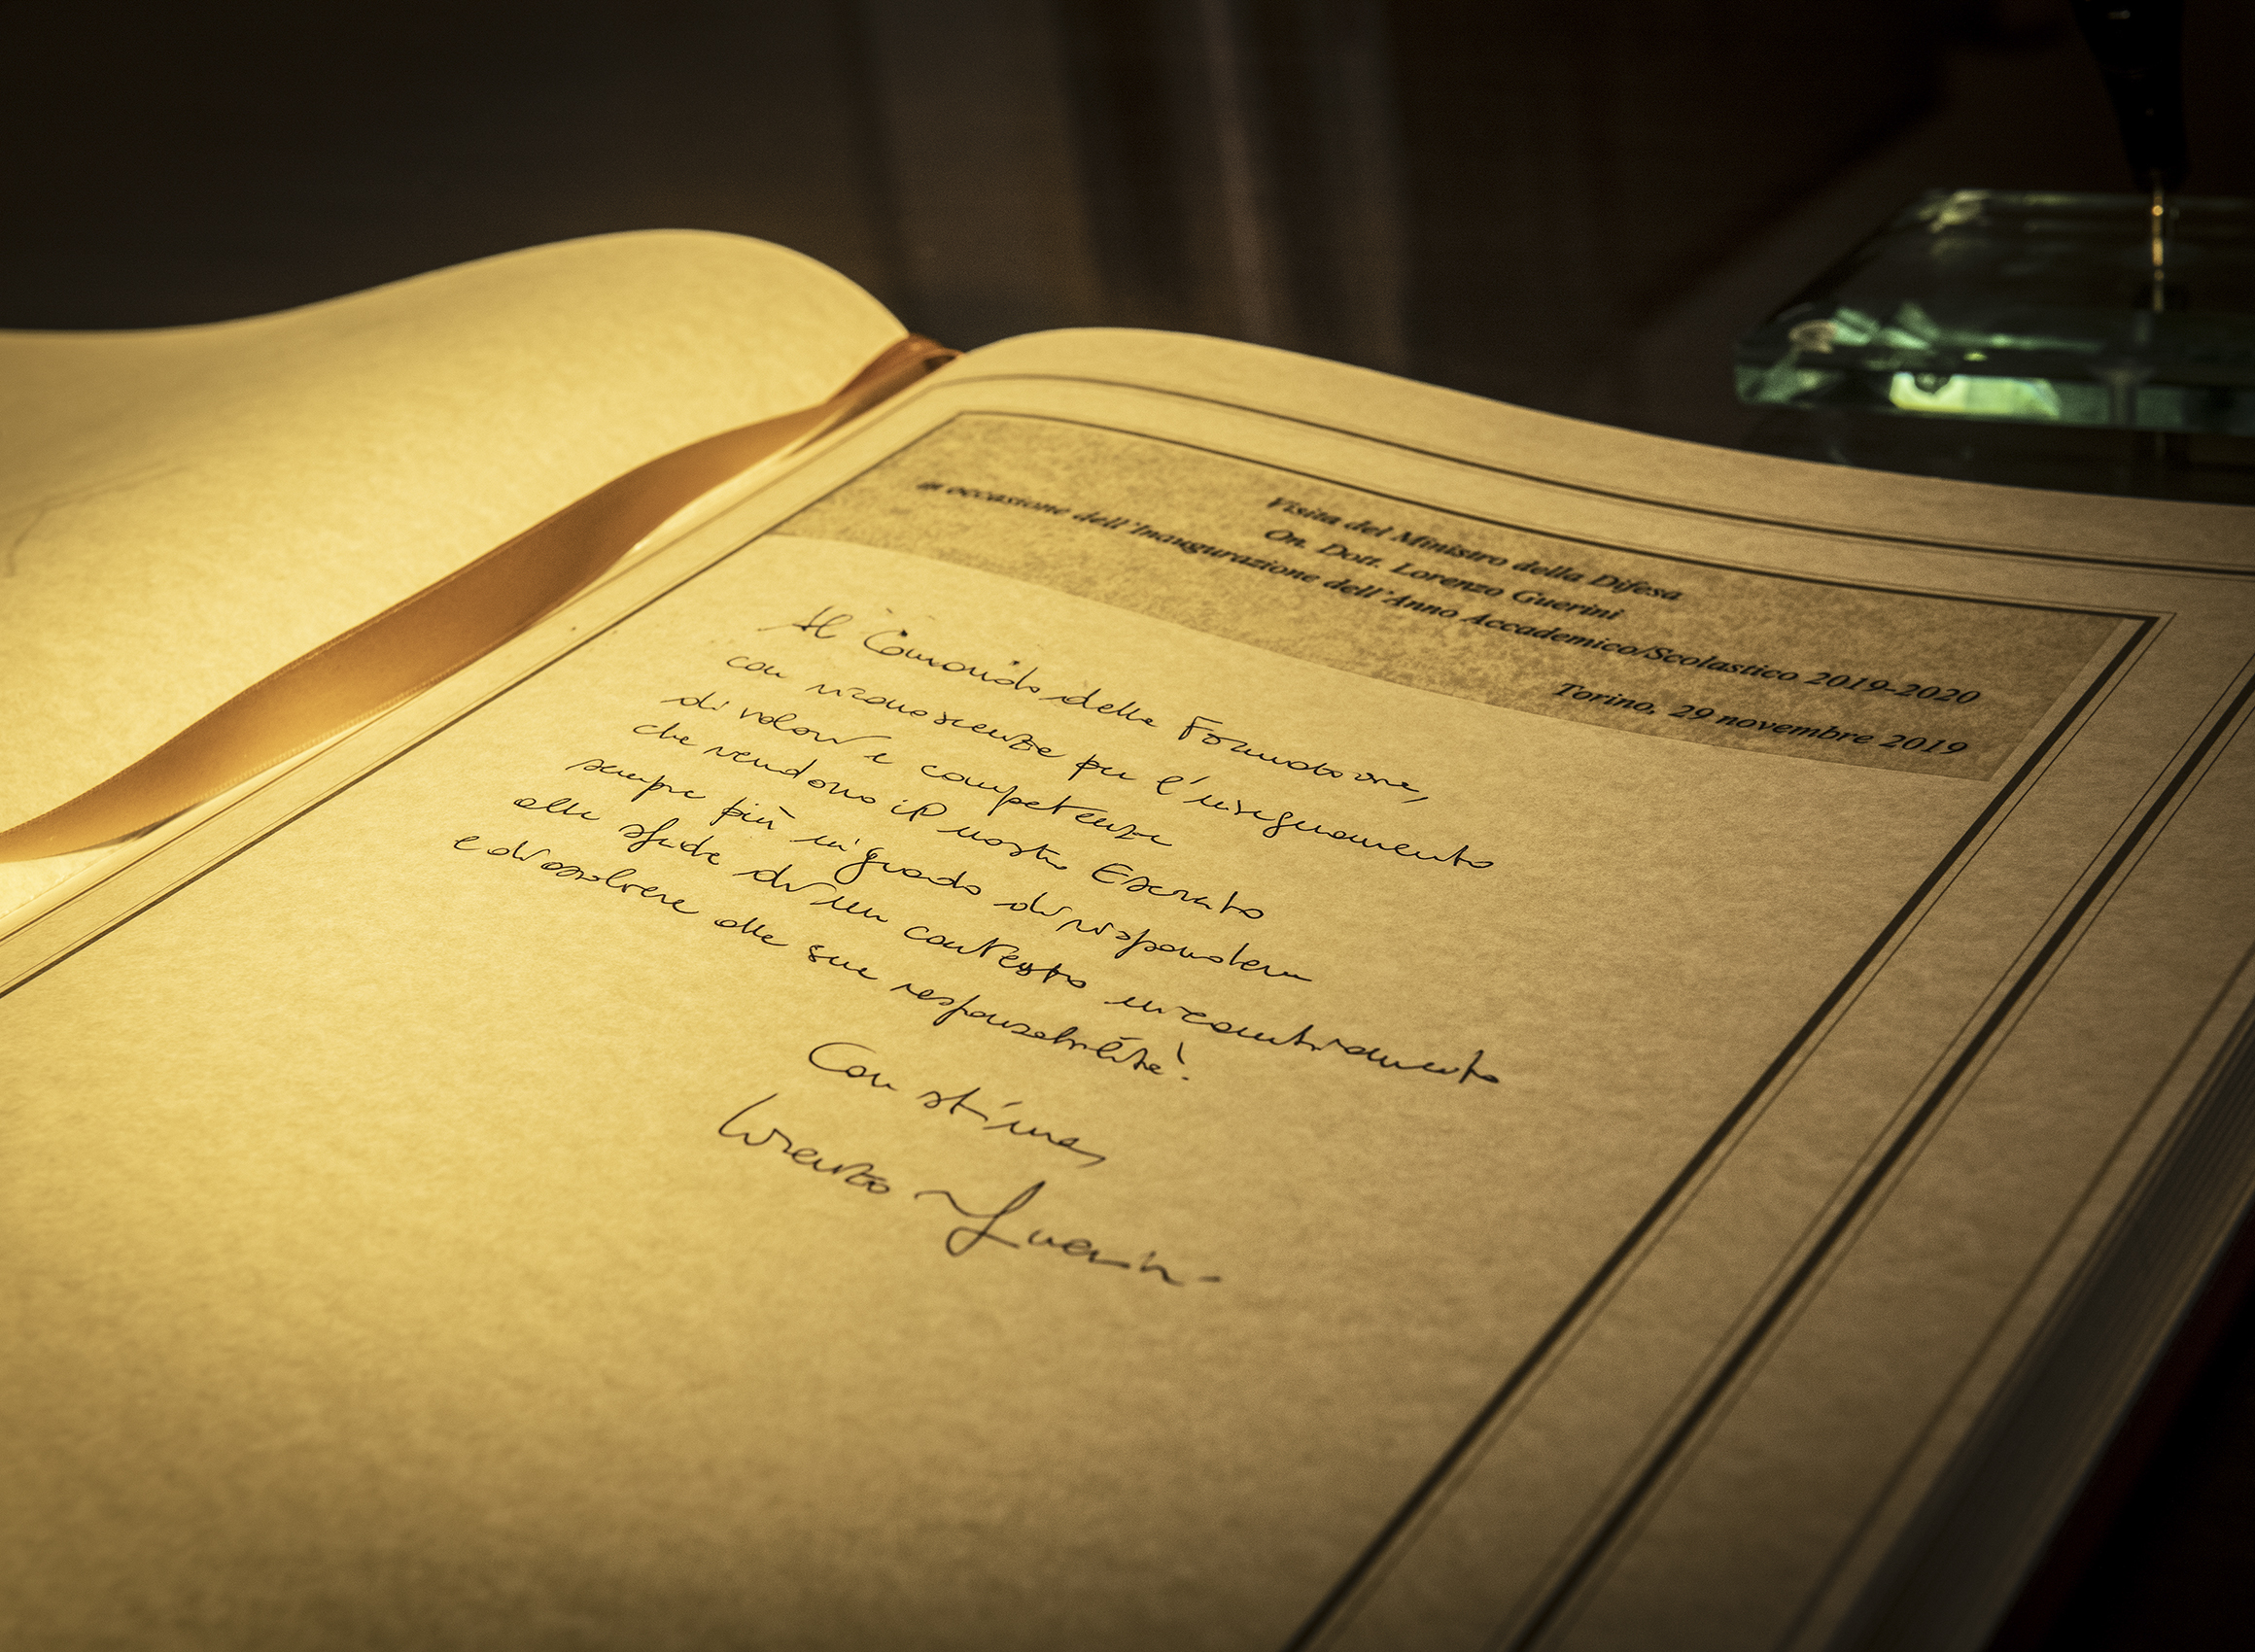 Visita del Ministro della Difesa
On. Dott. Lorenzo Guerini
in occasione dell'Inaugurazione dell'Anno Accademico/Scolastico 2019-2020
Torino, 29 novembre 2019
Al Comando della Formazione,
con riconoscenza per l'insegnamento
di valori e competenze
che rendono il nostro Esercito
sempre più in grado di rispondere
alle sfide di un contesto in cambiamento
e di assolvere alle sue responsabilità.
Con stima,
Lorenzo Guerini